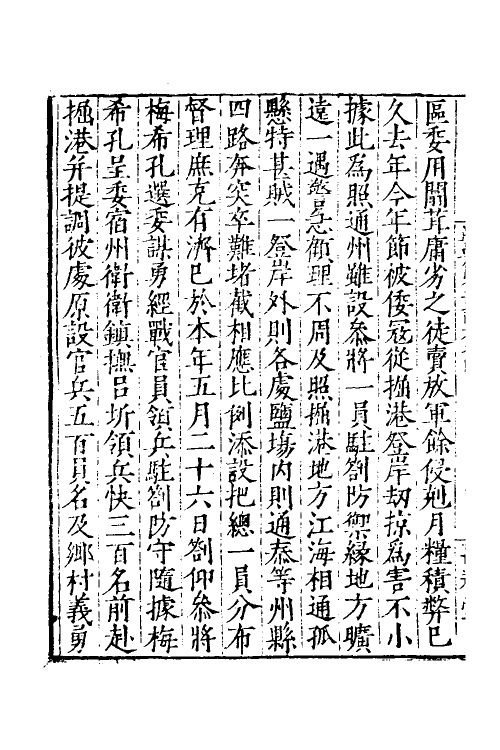 區委用闒茸庸劣之徒賣放軍餘侵剋月糧積弊已
久去年今年節被倭寇從掘港登岸刼掠為害不小
據此為照通州雖設叅將一員駐劄防禦縁地方曠
遠一遇警急顧理不周及照掘港地方江海相通孤
懸特甚賊一登岸外則各處鹽塲内則通泰等州縣
四路奔突卒難堵截相應比例添設把總一員分布
督理庶克有濟已於本年五月二十六日劄仰叅將
梅希孔選委謀勇經戰官員領兵駐劄防守隨據梅
希孔呈委宿州衛衛鎮撫吕圻領兵快三百名前赴
掘港并提調彼處原設官兵五百員名及鄉村義勇